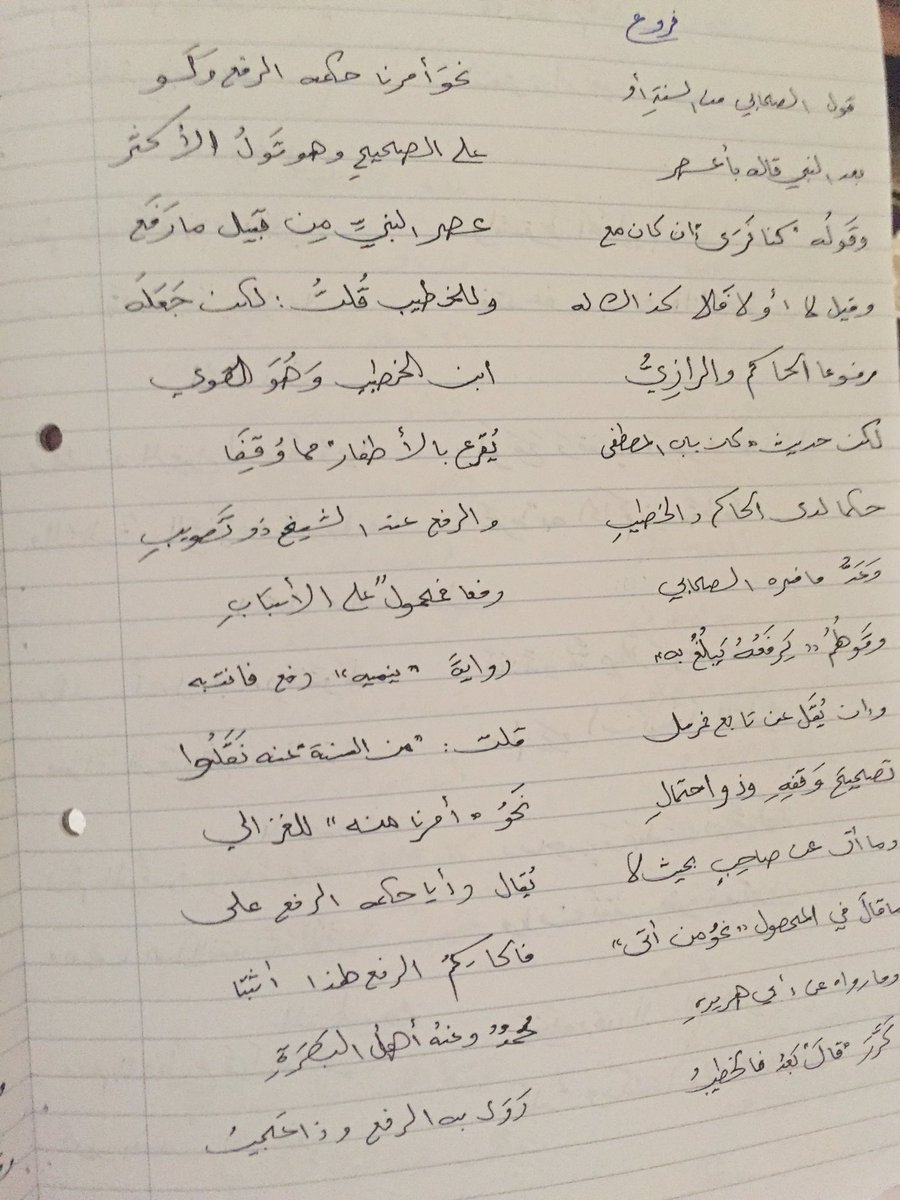 فروع
قول الصحابي من السنةِ أو نحوَ أمرنا حكمه الرفع ولَو
بعد النبي قاله بأعصر على الصحيحِ وهو قَولُ الأكثر
وقَولُه "كنا نَرَى" إن كان مع عصر النبيِّ مِن قَبيل ما رَفَع
وقيل لا أَوْ لا فَلا كذاك له وللخطيب قُلتُ: لكن جَعَلَه
مرفوعا الحاكم والرازِيُّ ابن الخطيب وَهُوَ القوي
لكن حديث "كان باب المصطفى يُقرع بالأظفار" مما وُقِفَا
حكما لدى الحاكم والخطيبِ والرفع عند الشيخ ذو تَصويبِ
وَعَدُّ ما فسره الصحابي رفعا فمحمولٌ على الأسبَابِ
وقَولُهُمْ "يَرفَعُهُ يَبلُغُ به" روايةً "ينميه" رفع فانتبه
وإن يُقَل عن تابع فمرسل قلت: "من السنة" عنه نَقَلُوا
تصحيحَ وَقفِهِ وذو احتمالِ نَحوُ "أمرنا منه" للغزالي
وما أتى عن صاحِبٍ بحيث لا يُقال رأيا حكمه الرفع على
ماقالَ في المحصول "نحوُ من أتى" فالحاكمُ الرفع لهذا أثبتا
وما رواه عن أبي هريرةِ محمدٌ وعنهُ أهلُ البَصرَةِ
كَرَّرَ "قالَ" بَعدُ فالخطيبُ رَوَى به الرفع وذا عَجيبُ